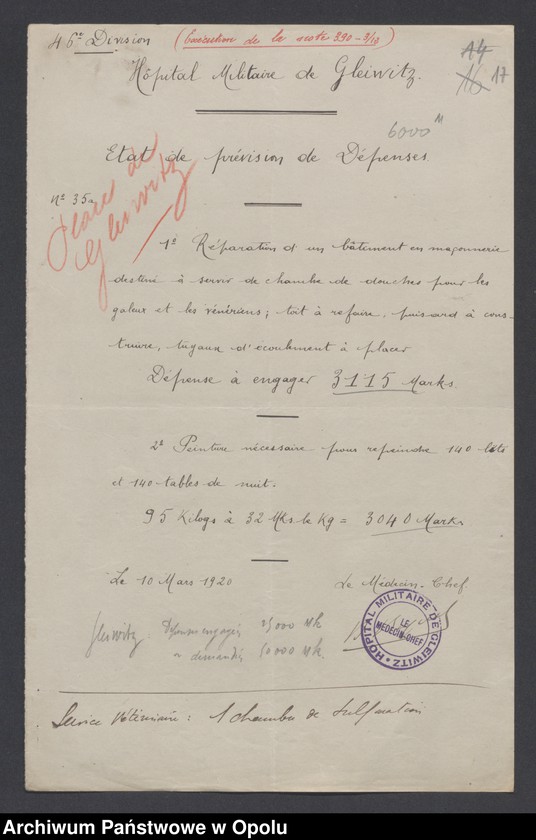 46e Division
(Exécution de la note 390-3/10)
A4
16 17
Hôpital Militaire de Gleiwitz.
6000 M
Etat de prévision de Dépenses.
Place de Gleiwitz
No 35a
1o Réparation d'un bâtiment en maçonnerie
destiné à servir de chambre de douches pour les
galeux et les vénériens; toit à refaire, puisard à cons-
truire, tuyaux d'écoulement à placer
Dépense à engager 3115 Marks.
2o Peinture nécessaire pour repeindre 140 lits
et 140 tables de nuit.
95 Kilogs à 32 Mks le Kg = 3040 Marks
Le 10 Mars 1920
Le Médecin-Chef.
HÔPITAL MILITAIRE DE GLEIWITZ
LE MÉDECIN-CHEF
Gleiwitz Dépenses engagées 25000 Mk
" demandées 50000 Mk.
Service Vétérinaire: 1 chambre de sulfuration
Archiwum Państwowe w Opolu